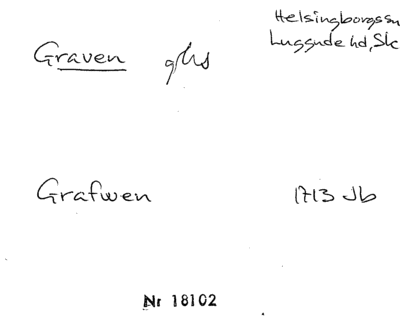 Helsingborgs sn
Luggude hd, Sk
Graven ghs
Grafwen 1713 Jb
Nr 18102